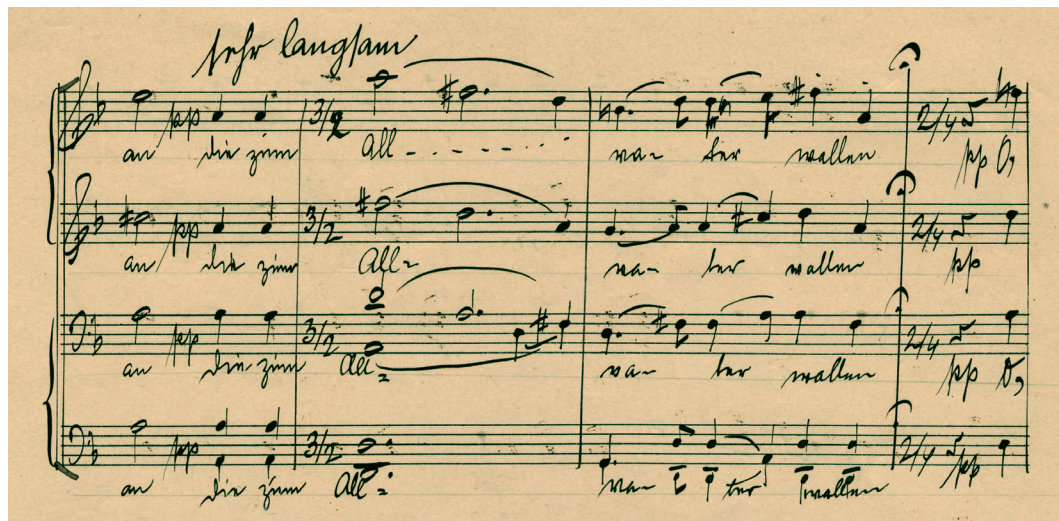 sehr langsam
3/2 2/4
an pp die zum All - - - - - - va- ter wallen pp O,
3/2 2/4
an pp die zum All- va- ter wallen pp
3/2 2/4
an pp die zum All- va- ter wallen pp O,
3/2 2/4
an pp die zum All- va- ter wallen pp